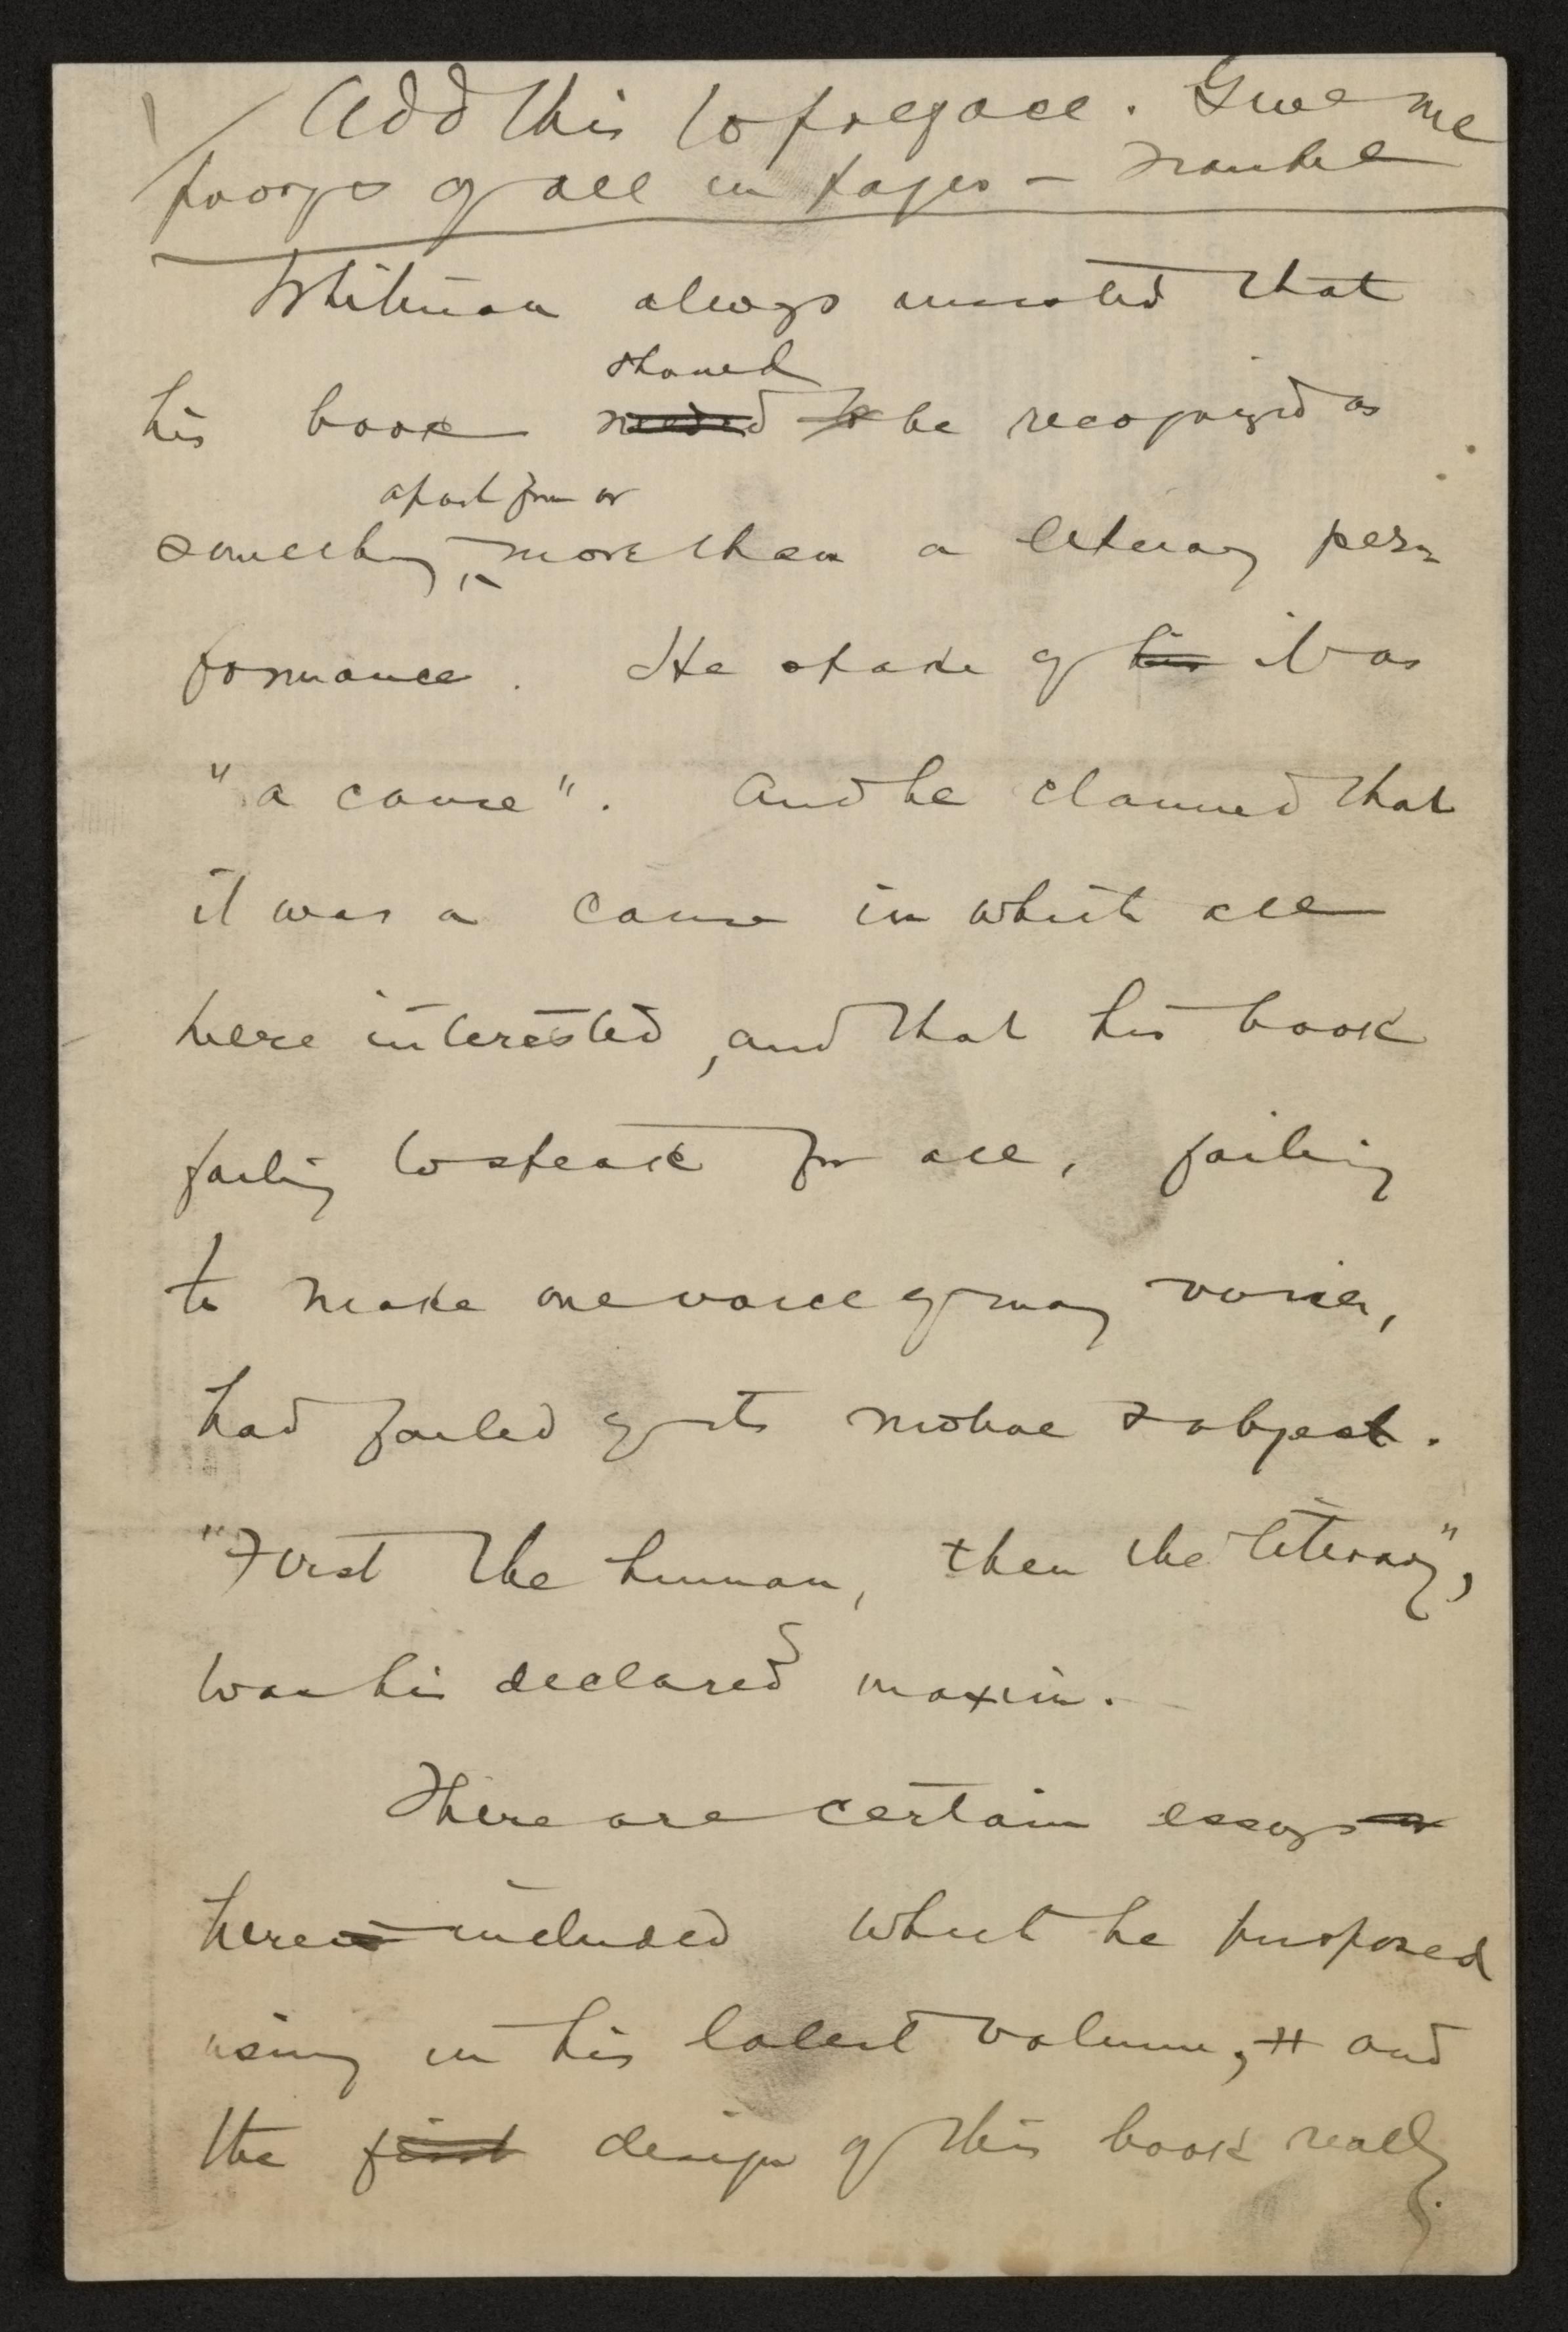 Add this to preface. Give me
proofs of all in pages — Traubel
Whitman always insisted that
should
his book needed to be recognized as
apart from or
something, more than a literary per-
formance. He spoke of his it as
"a cause". And he claimed that
it was a cause in which all
were interested, and that his book
failing to speak for all, failing
to make one voice of many voices,
had failed of its motive & object.
"First the human, then the literary",
was his declared maxim.
There are certain essays
herein included which he purposed
using in his latest volume, and
the first design of this book really